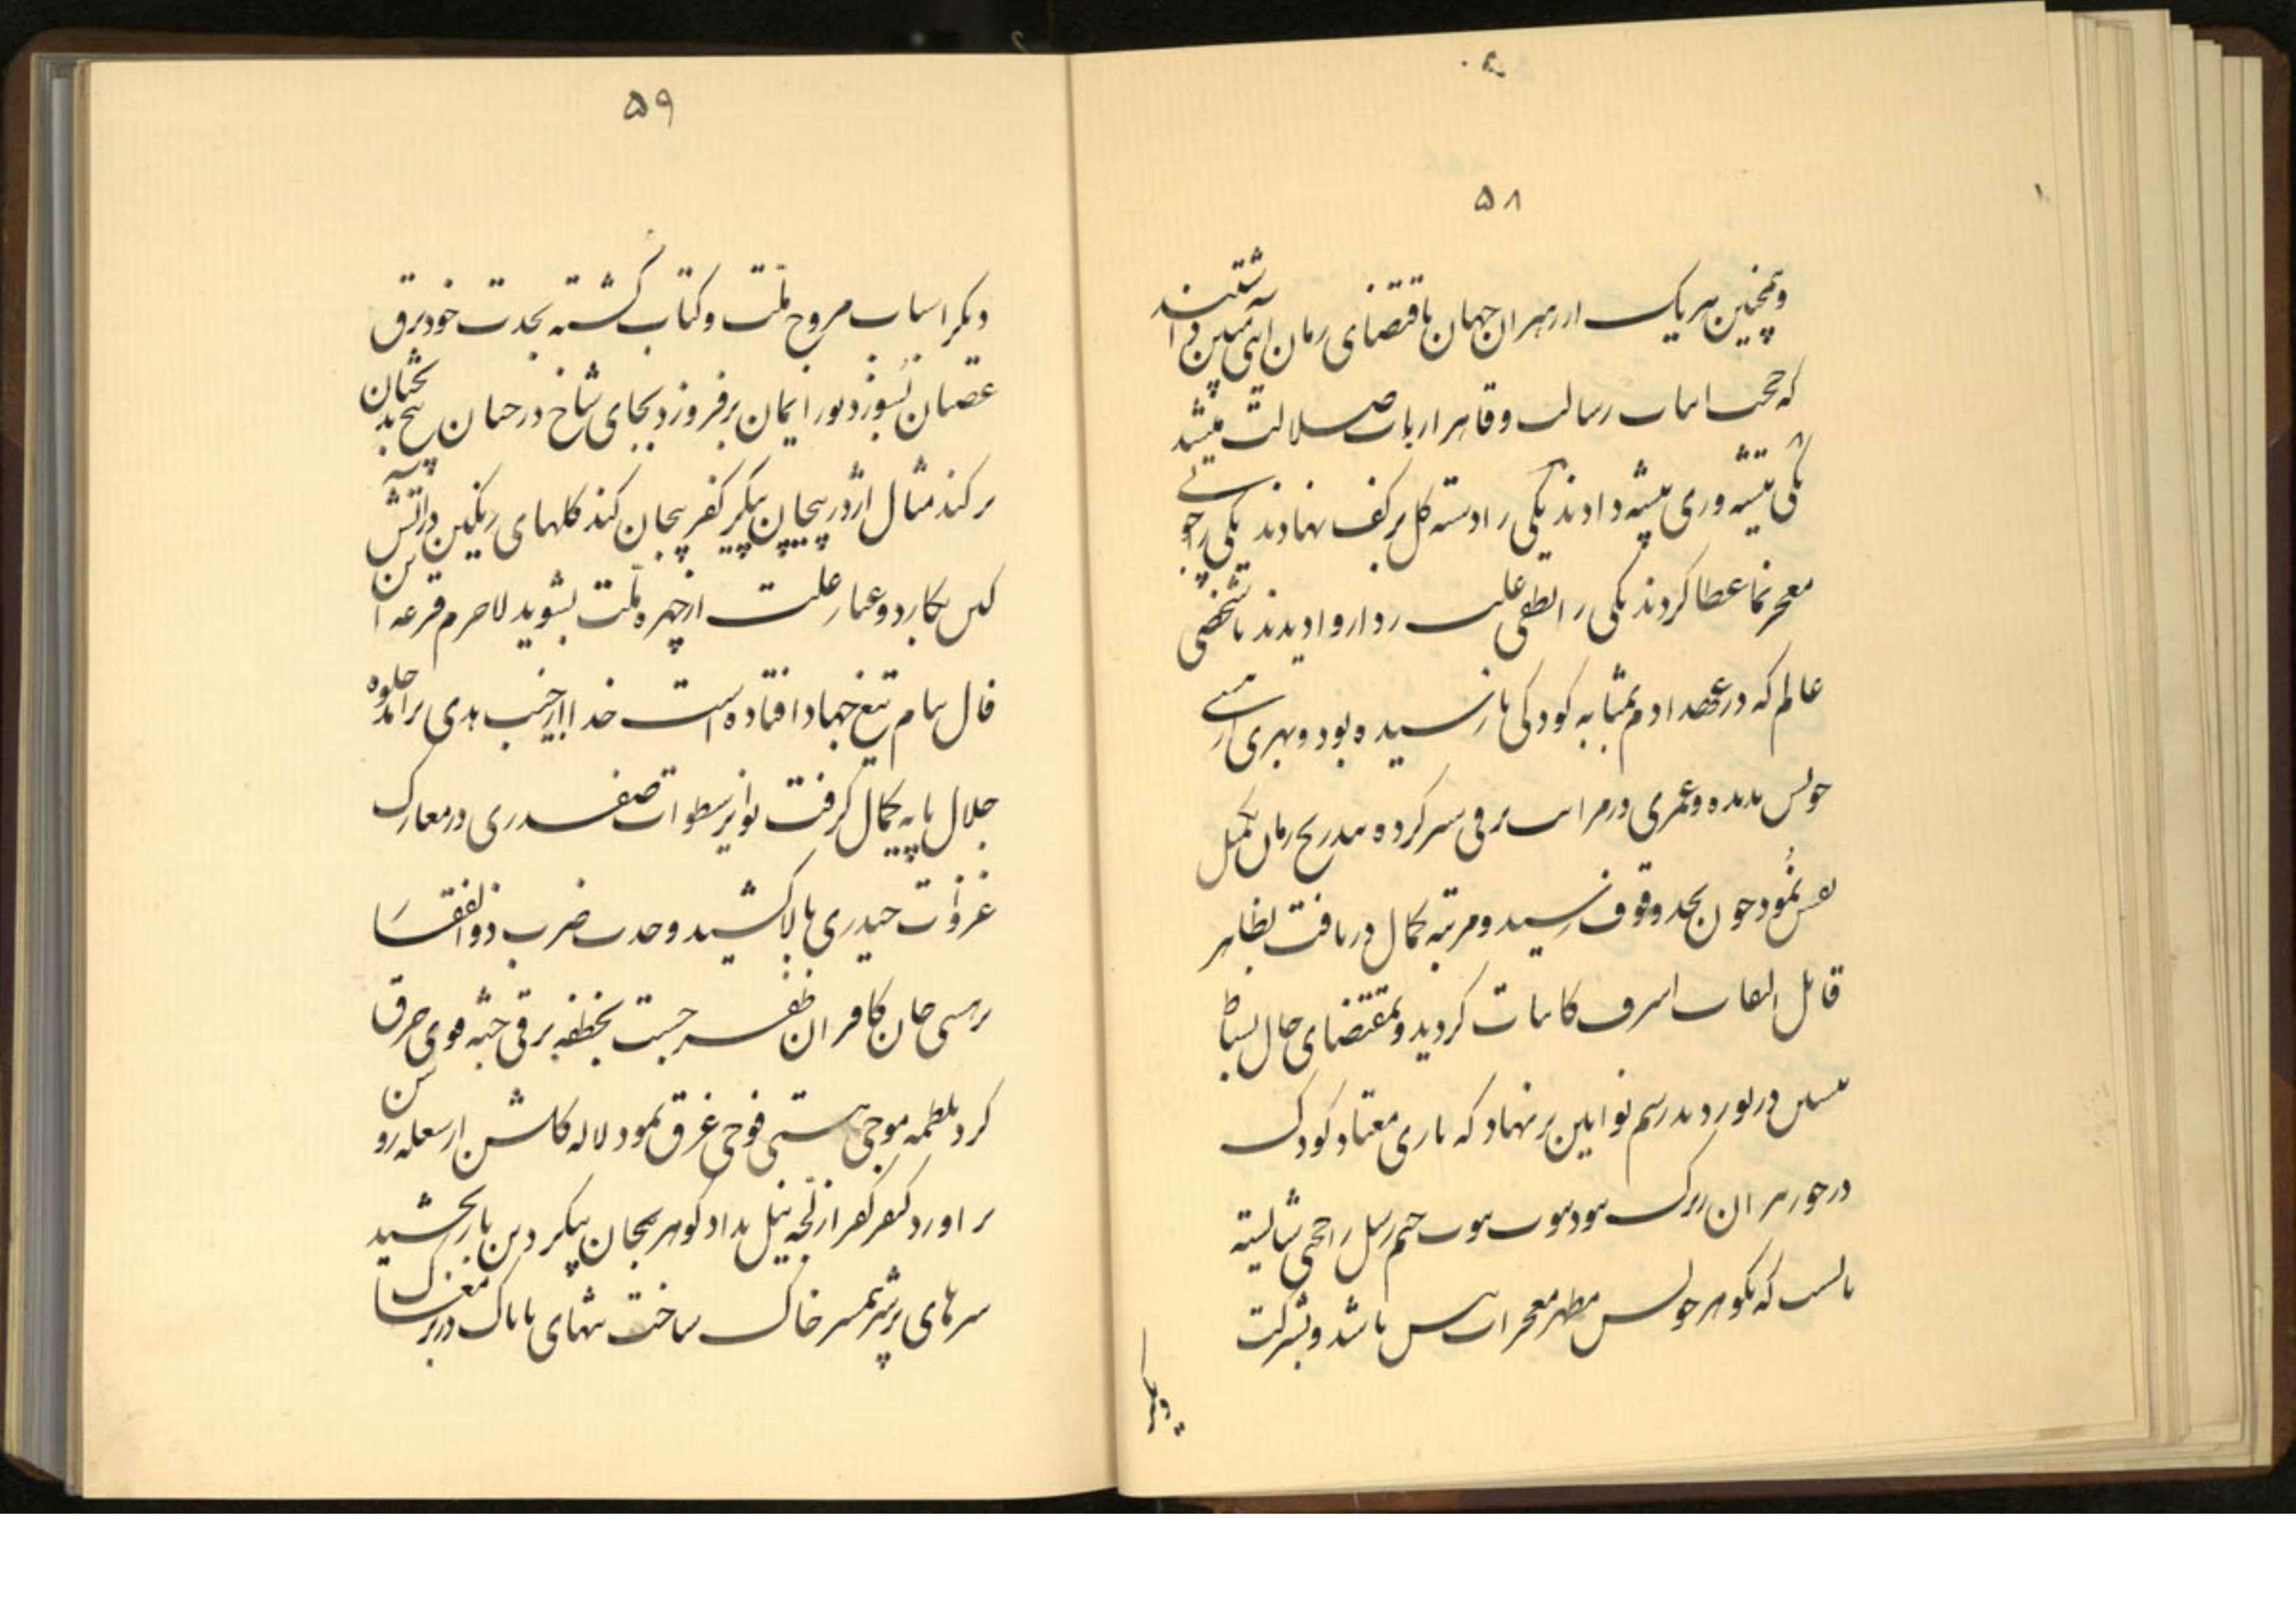 ۵۸
وهمچنین هر یک از رهبران جهان باقتضای زمان آیتی مبین داشتند
که حجت اثبات رسالت و قاهر ارباب ضلالت میشد
یکی تیشه وری پیشه دادند یکی را دسته گل بر کف نهادند یکی را چوبی
معجز نما عطا کردند یکی را نطقی علت ردا روا دیدند تا شخصی
عالم که در عهد آدم بمثابه کودکی نارسیده بود و بهری از هستی
خویش ندیده و عمری در مراتب ترقی سیر کرده بتدریج زمان تکمیل
نفس نمود چون بحد وقوف رسید و مرتبه کمال دریافت بظاهر
قابل التفات اشرف کاینات گردید و بمقتضای حال بساط
در نوردید رسم نو آیین بر نهاد که بازی معتاد کودک
در خور مردان بزرگ نبود نوبت ختم رسل را حجتی شایسته
بایست که بگوهر خویش مظهر معجزات باشد و بشرکت
دیگر
۵۹
دیگر اسباب مروج ملت و کتاب گشته بحدت خود برق
عصیان بسوزد نور ایمان برفروزد بجای شاخ درختان بیخ بدبختان
برکند مثال اژدر پیچان پیکر کفر بیجان کند گلهای رنگین در آتش
کین بکارد و غبار علت از چهره ملت بشوید لاجرم قرعه این
فال بنام تیغ جهاد افتاده است خدا را از جیب هدی برآمد جلوه
جلال پایه کمال گرفت نوایر سطوات صفدری در معارک
غزوات حیدری بالا کشید وحدت ضرب ذوالفقار
بر هستی جان کافران ظفر جست بخطفه برقی جثه قومی حرق
کرد بلطمه موجی هستی فوجی غرق نمود لاله گلشن از شعله روشن
بر آورد کیفر کفر از لجه نیل بداد گوهر بیجان پیکر دین باز بخشید
سرهای پر شر همسر خاک ساخت تنهای ناپاک در بر مغاک